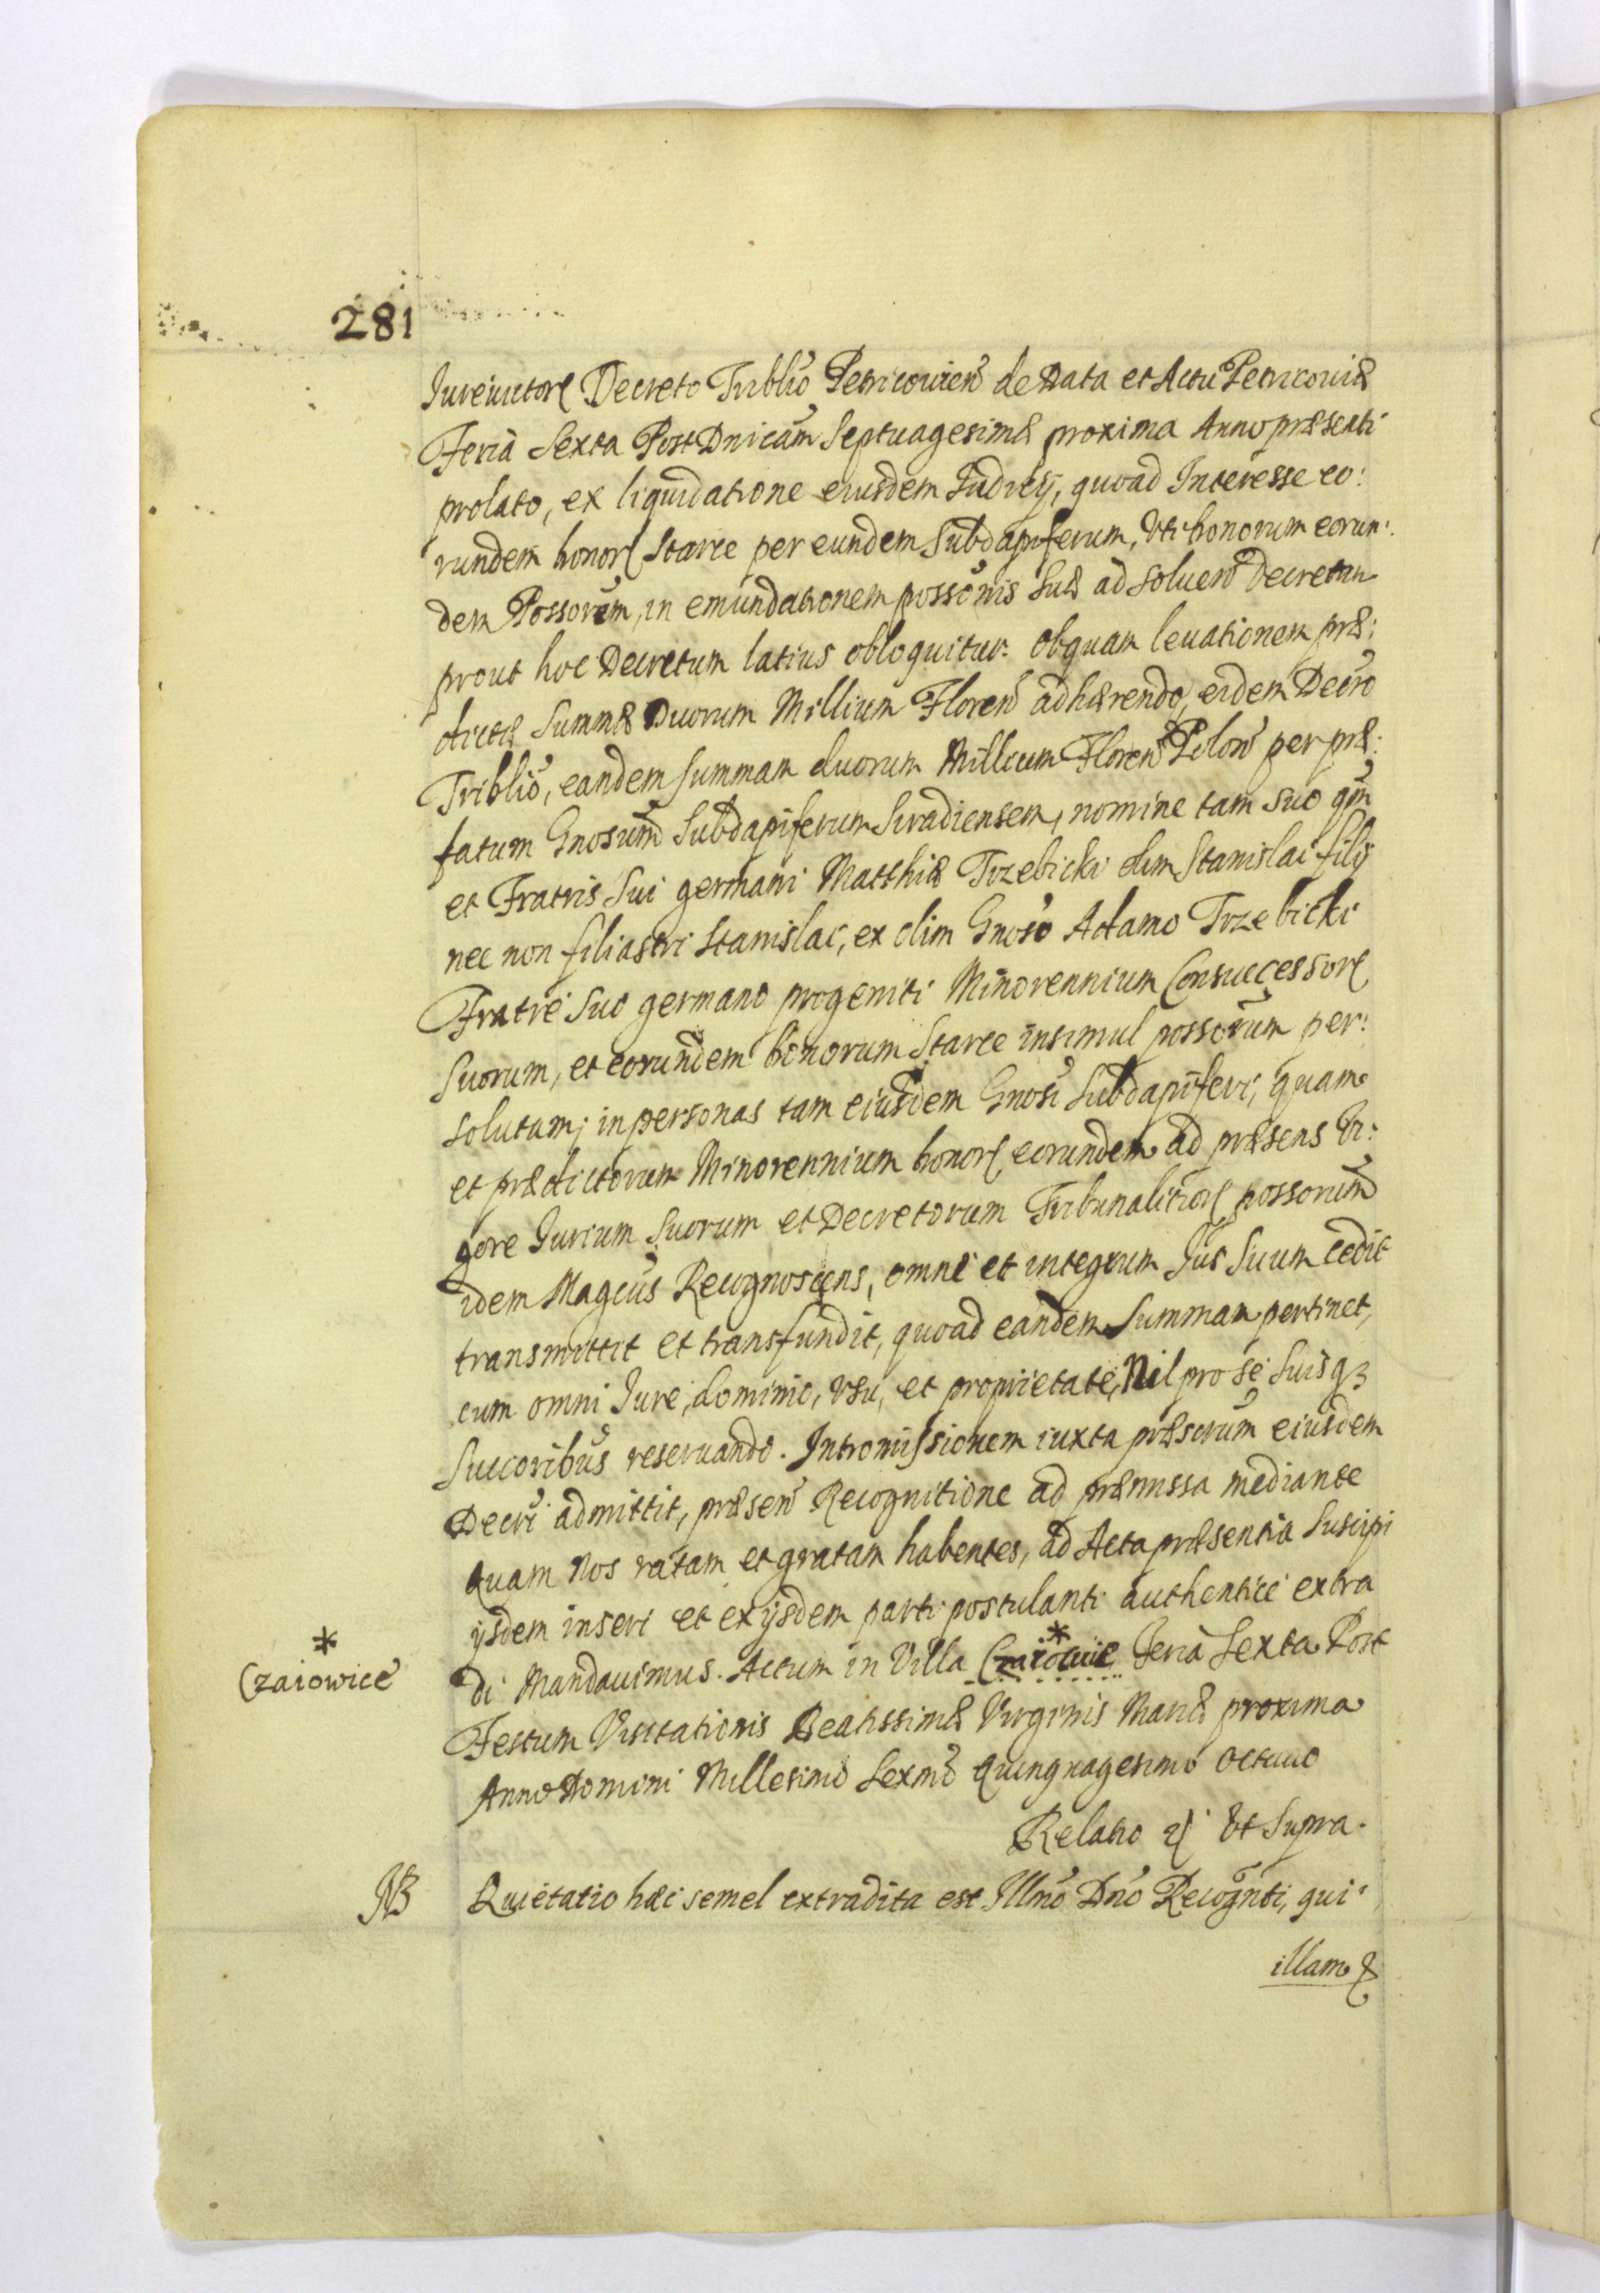 281
Iureuictor Decreto Triblio Petricouien de Data et Actu Petricouiæ
Feria Sexta Post Dnicam Septuagesimæ proxima Anno præsenti
prolato, ex liquidatione eiusdem Iudicij, quoad Interesse eo:
rundem bonor Starce per eundem Subdapiferum, Vti bonorum eorun:
dem Possorem, in emundationem possonis Suæ ad soluen Decretam
prout hoc Decretum latius obloquitur. Ob quam leuationem præ:
dictæ Summæ Duorum Millium Floren adhærendo eidem Decro
Triblio, eandem summam duorum Millium Floren Polon per præ:
fatum Gnosum Subdapiferum Siradiensem, nomine tam suo qm
et Fratris Sui germani Matthiæ Trzebicki olim Stanislai filij
nec non filiastri Stanislai, ex olim Gnoso Adamo Trzebicki
Fratre Suo germano progeniti Minorennium Consuccessor
Suorum, et eorundem bonorum Starce insimul possorum per:
solutam, in personas tam eiusdem Gnosi Subdapiferi, quam
et prædictorum Minorennium bonor eorundem ad præsens Vi:
gore Iurium Suorum et Decretorum Tribunalitior possorum
idem Magcus Recognoscens, omne et integrum Jus Suum cedit
transmittit et transfundit, quoad eandem Summam pertinet,
cum omni Iure, dominio, Vsu, et proprietate, Nil pro se Suisqz
Succoribus reseruando. Intromissionem iuxta præscrum eiusdem
Decri admittit, præsen Recognitione ad præmissa mediante
Quam Nos ratam et gratam habentes, ad Acta præsentia Suscipi
ijsdem inseri et ex ijsdem parti postulanti authentice extra
di Mandauimus. Actum in Villa Czaiowice * Feria Sexta Post
* Czaiowice
Festum Visitationis Beatissimæ Virginis Mariæ proxima
Anno Domini Millesimo Sexmo Quinquagesimo Octauo
Relatio Vt Supra.
NB Quietatio hæc semel extradita est Illmo Dno Recognti, qui
illam &